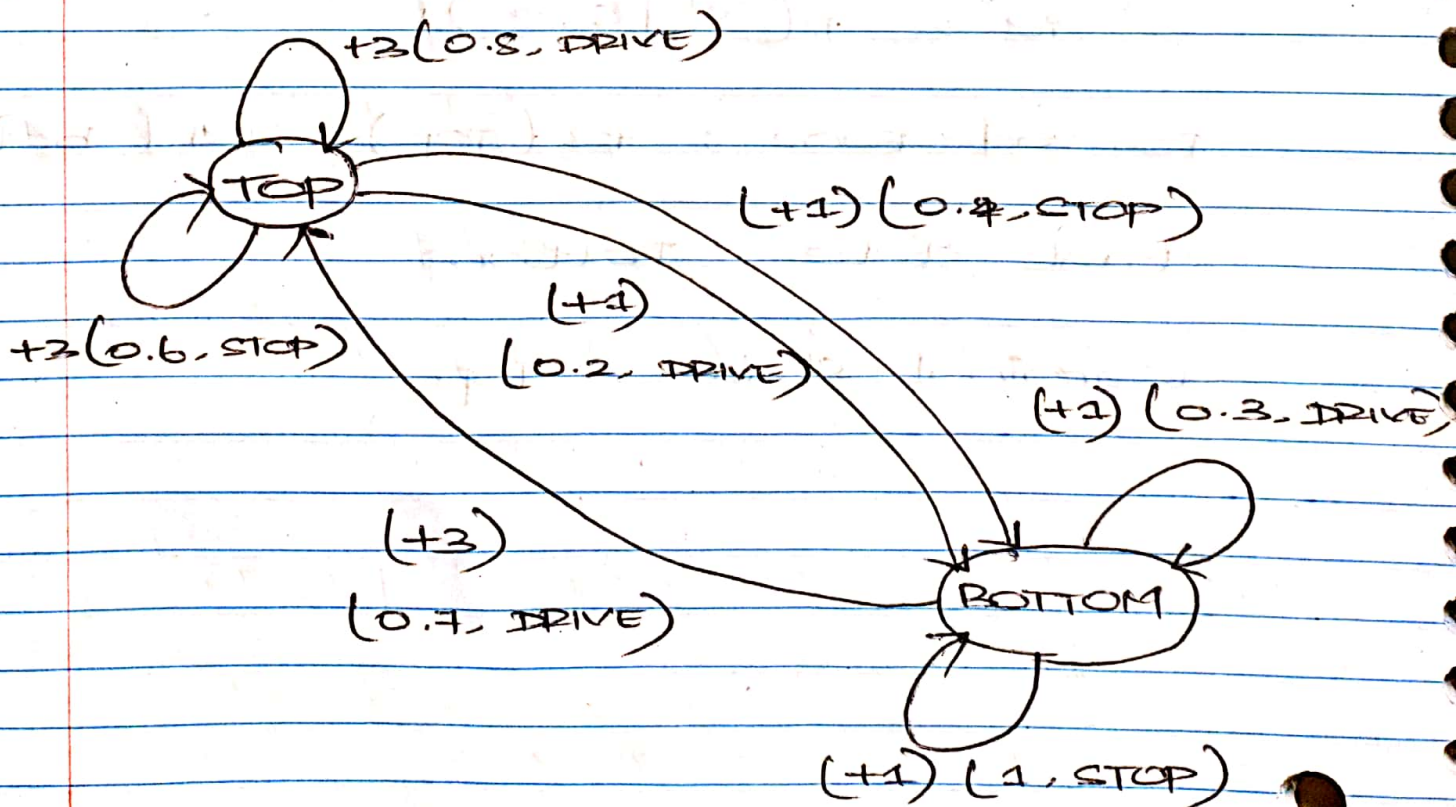 +3(0.8, DRIVE)
TOP
(+1)(0.4, STOP)
(+1)
(0.2, DRIVE)
+3(0.6, STOP)
(+1) (0.3, DRIVE)
(+3)
(0.7, DRIVE)
BOTTOM
(+1) (1, STOP)